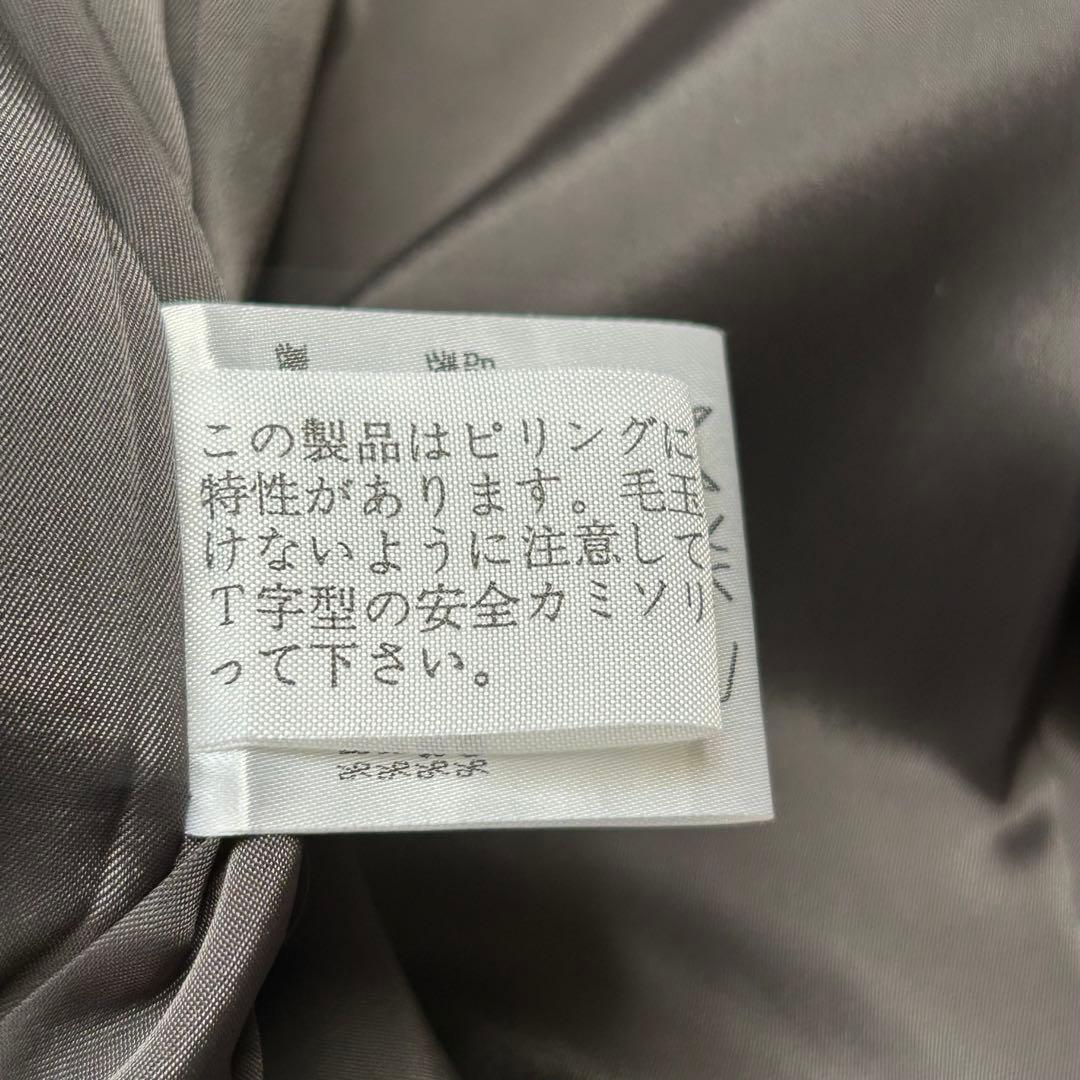 この製品はピリングに
特性があります。毛玉
けないように注意して
T字型の安全カミソリ
って下さい。